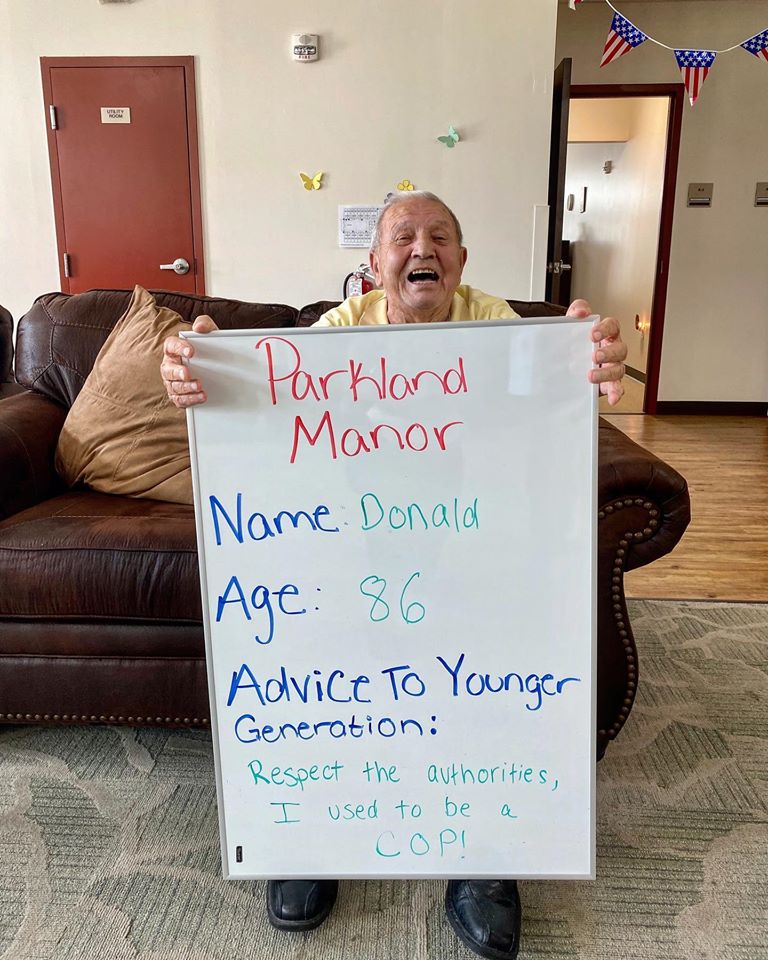 UTILITY
ROOM
FIRE
Parkland
Manor
Name: Donald
Age: 86
Advice To Younger
Generation:
Respect the authorities,
I used to be a
COP!